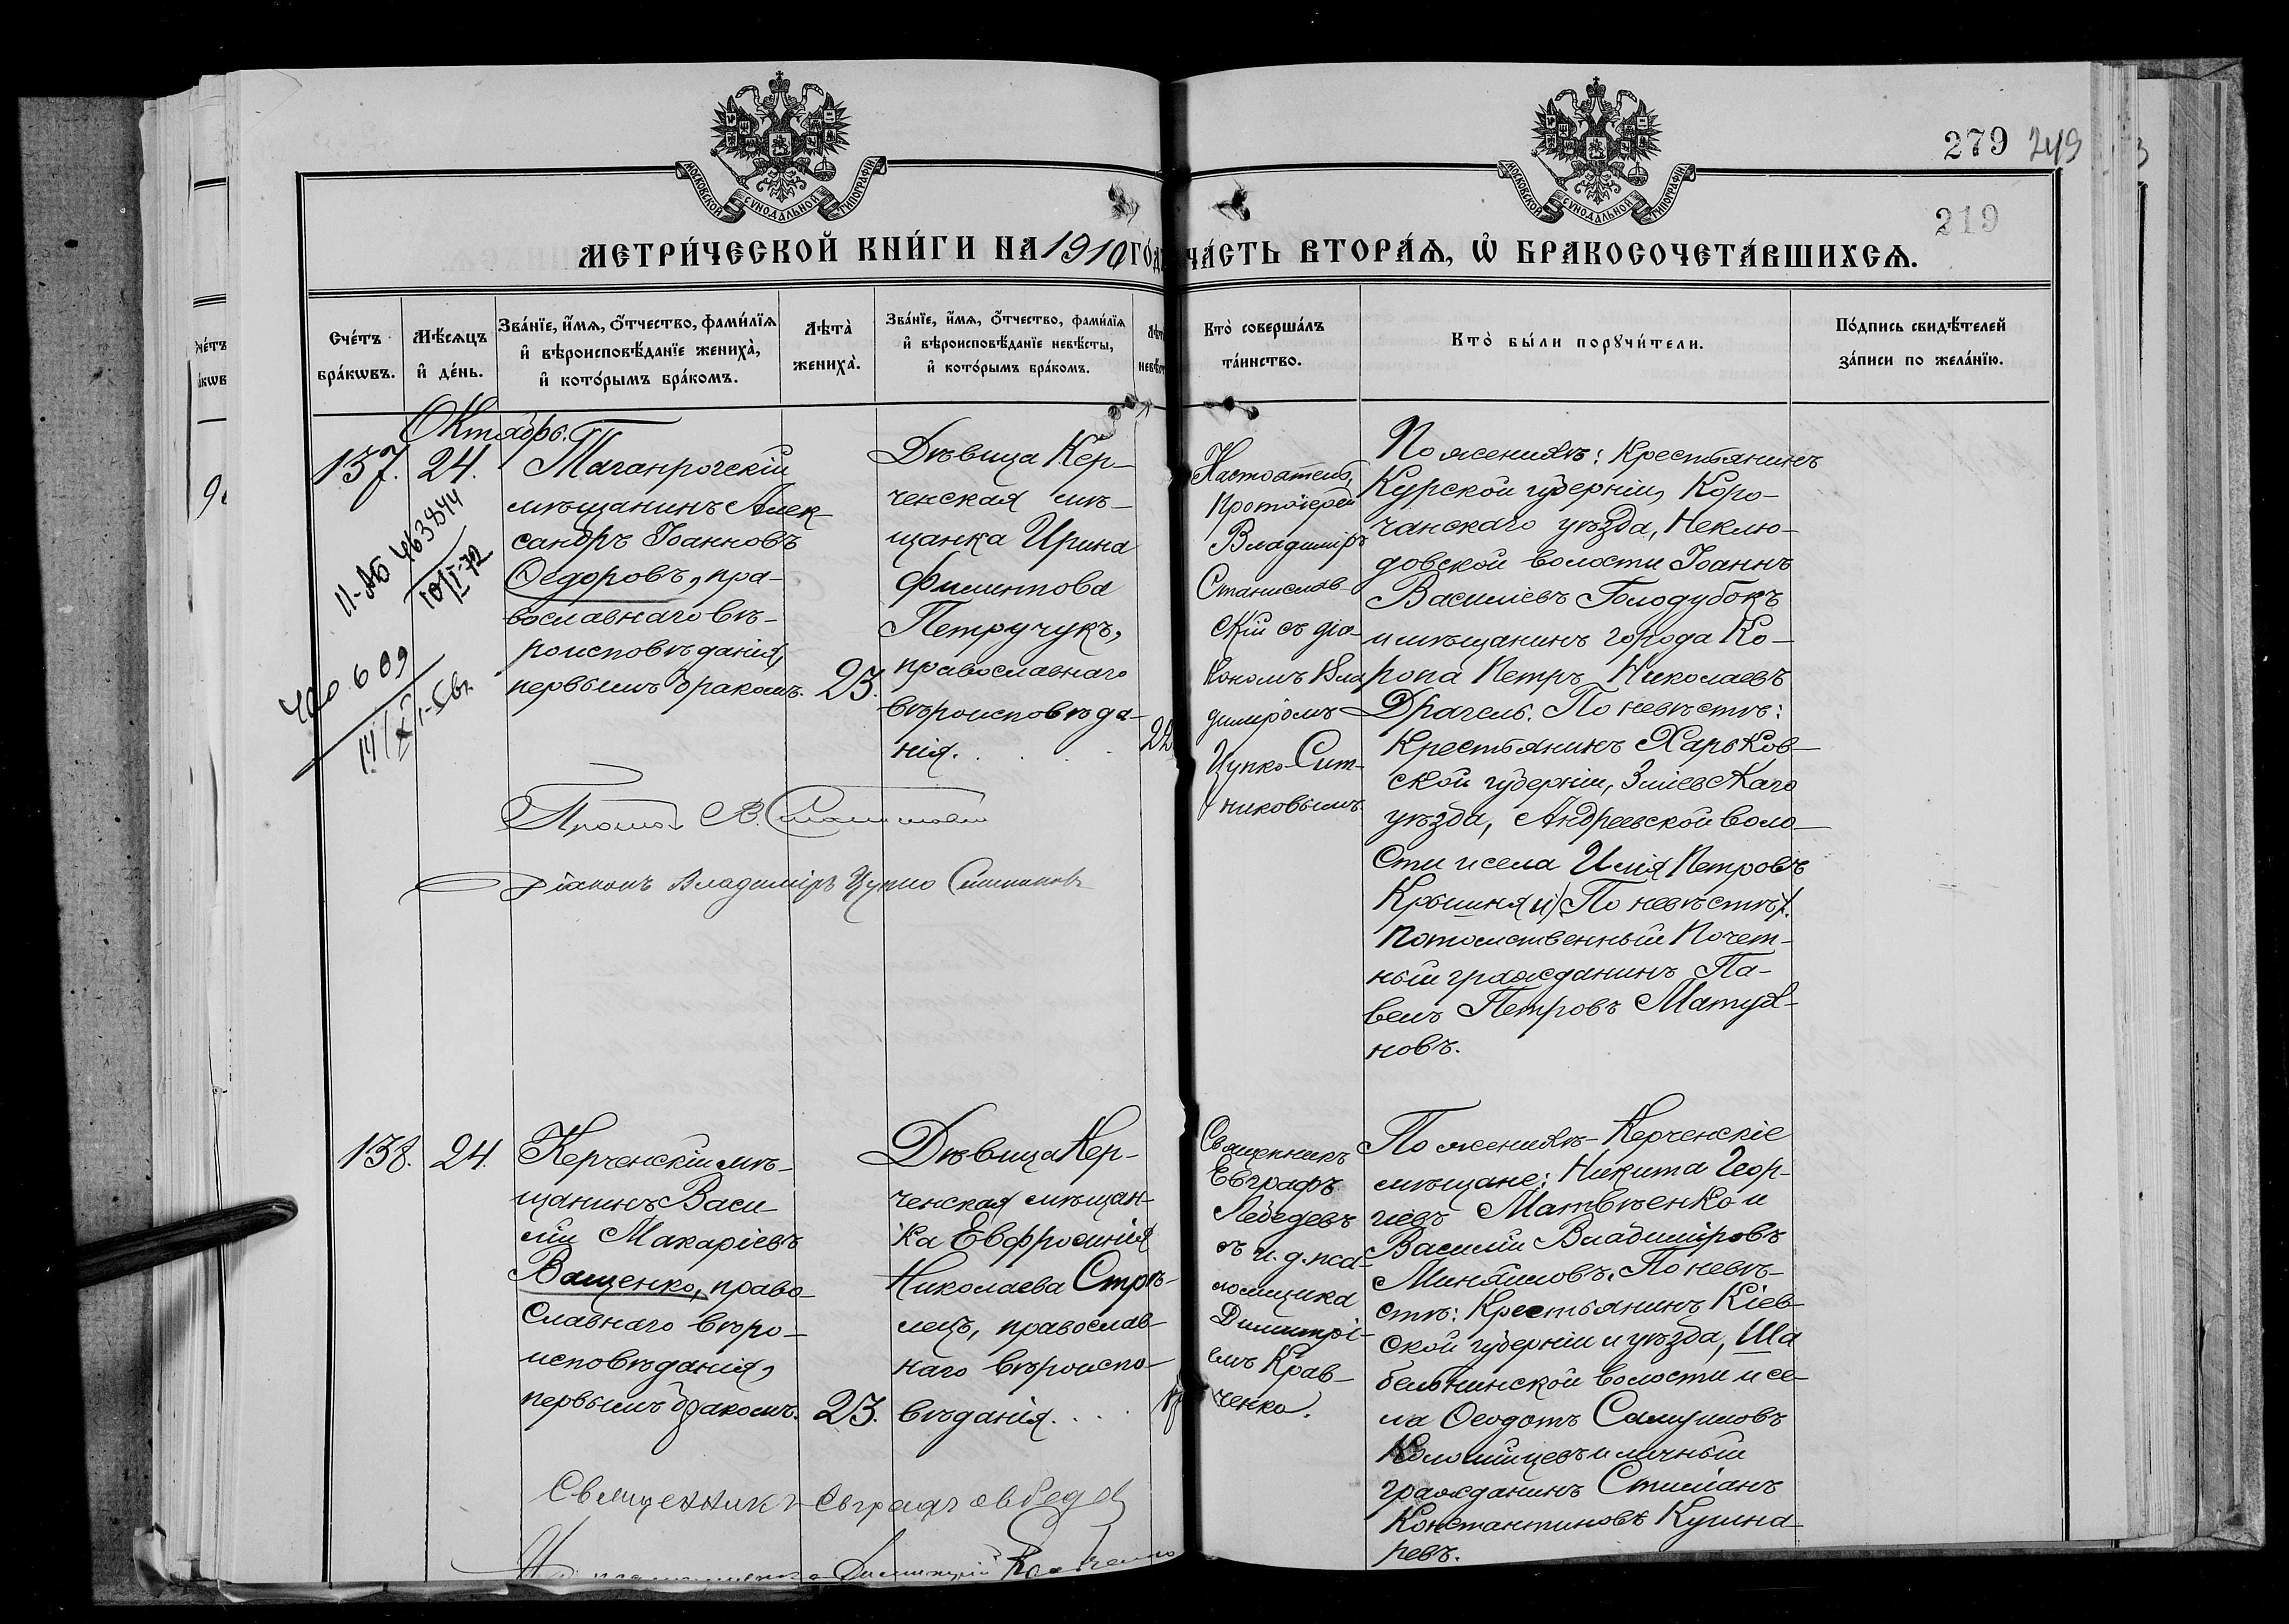 279 249
219
МОСКОВСКОЙ СѴНОДАЛЬНОЙ ТИПОГРАФІИ
МОСКОВСКОЙ СѴНОДАЛЬНОЙ ТИПОГРАФІИ
МЕТРИ́ЧЕСКОЙ КНИ́ГИ НА 1910 ГО́ДЪ ЧА́СТЬ ВТОРА́Ѧ, Ѽ БРАКОСОЧЕТА́ВШИХСѦ.
Сче́тъ
бра́кѡвъ.
Мѣ́сѧцъ
и҆ де́нь.
Зва́нїе, и҆́мѧ, ѻ҆́тчество, фами́лїѧ
и҆ вѣроисповѣ́данїе жениха̀,
и҆ кото́рымъ бра́комъ.
Лѣта̀
жениха̀.
Зва́нїе, и҆́мѧ, ѻ҆́тчество, фами́лїѧ
и҆ вѣроисповѣ́данїе невѣ́сты,
и҆ кото́рымъ бра́комъ.
Кто̀ соверша́лъ
та́инство.
Кто̀ бы́ли порꙋчи́тели.
По́дпись свидѣ́телей
за́писи по жела́нїю.
Октябрь.
137.
24.
Таганрогскій
мѣщанинъ Алек-
сандръ Іоанновъ
Ѳедоровъ, пра-
вославнаго вѣ-
роисповѣданія,
первымъ бракомъ.
23.
Дѣвица Кер-
ченская мѣ-
щанка Ирина
Филиппова
Петручукъ,
православнаго
вѣроисповѣда-
нія.
22
Настоятель,
Протоіерей
Владиміръ
Станислав-
скій съ діа-
кономъ Вла-
димiромъ
Цупко-Сит-
никовымъ.
По женихѣ: Крестьянинъ
Курской губерніи, Коро-
чанскаго уѣзда, Неклю-
довской волости Іоаннъ
Василіевъ Голодубокъ
и мѣщанинъ города Ко-
ропа Петръ Николаевъ
Драгель. По невѣстѣ:
Крестьянинъ Харьков-
ской губерніи, Зміевскаго
уѣзда, Андреевской воло-
сти и села Илія Петровъ
Крышня и) По невѣстѣ).
Потомственный Почет-
ный гражданинъ Па-
велъ Петровъ
новъ.
II-АБ 463844
10/I-72
400609
Протоі. В.
Діаконъ Владиміръ Цупко Ситниковъ
138.
24.
Керченскій мѣ-
щанинъ Васи-
лій Макаріевъ
Ващенко, право-
славнаго вѣро-
исповѣданія,
первымъ бракомъ.
23.
Дѣвица Кер-
ченская мѣщан-
ка Евфросинія
Николаева Стрѣ-
лецъ, православ-
наго вѣроиспо-
вѣданія.
Священникъ
Евграфъ
Лебедевъ
съ и. д. пса-
ломщика
Димитрі-
емъ Крав-
ченко.
По женихѣ - Керченскіе
мѣщане: Никита Геор-
гіевъ Матвѣенко и
Василій Владиміровъ
Минаиловъ. По невѣ-
стѣ: Крестьянинъ Кіев-
ской губерніи и уѣзда, Ша
бельнинской волости и се-
ла Ѳеодотъ Самуиловъ
Коломійцевъ и личный
гражданинъ Стиліанъ
Константиновъ Кушна-
ревъ.
Священникъ Евграфъ Лебедев
И. д. псаломщика Димитрій Кравченко